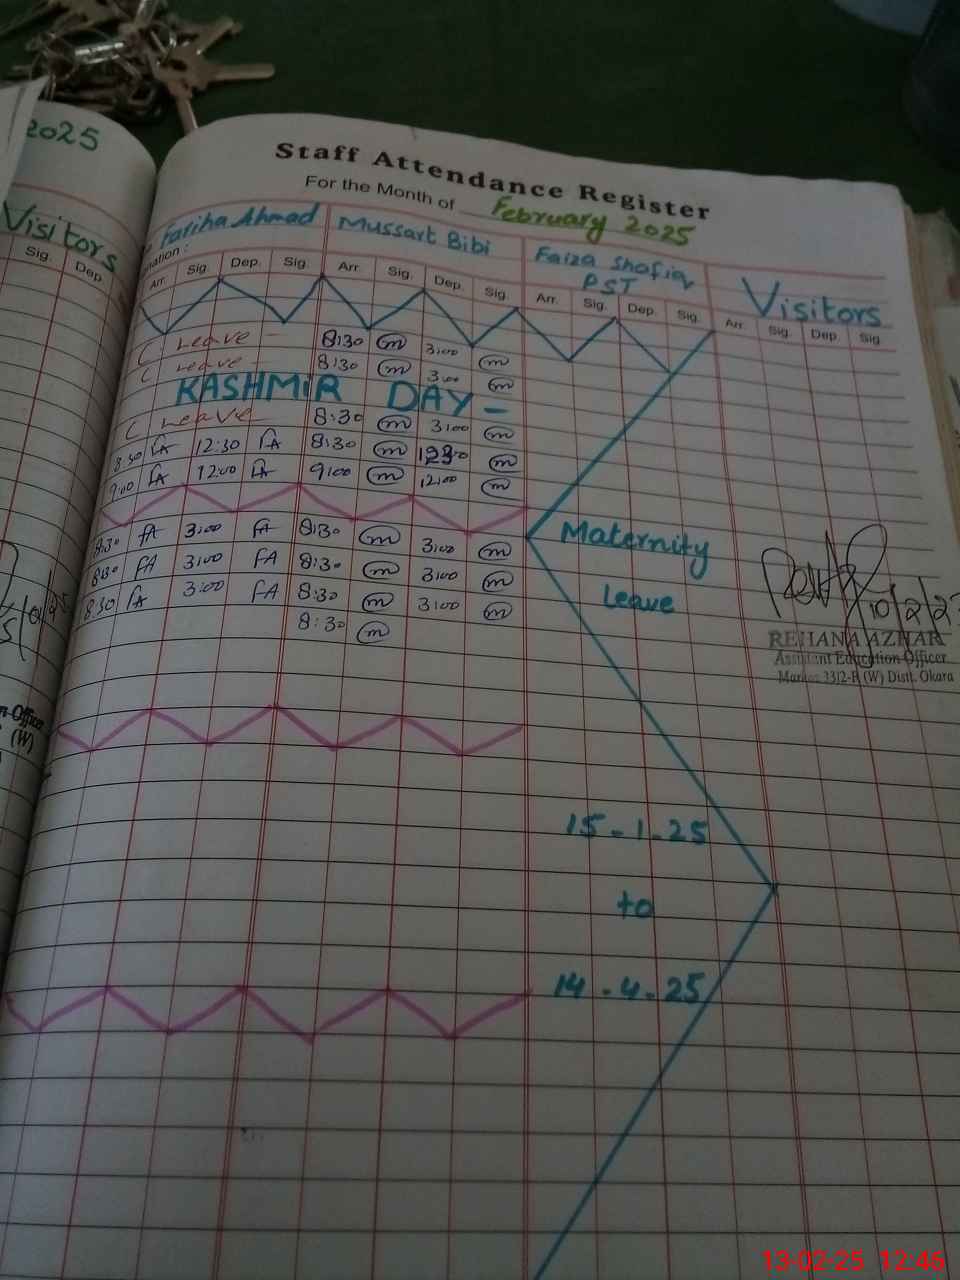 2025
Visitors
Sig. Dep.
Staff Attendance Register
For the Month of February 2025
Fariha Ahmad Mussart Bibi Faiza Shafiq
PST Visitors
Arr. Sig. Dep. Sig. Arr. Sig. Dep. Sig. Arr. Sig. Dep. Sig. Arr. Sig. Dep. Sig.
C Leave - 8:30 m 3:00 m
C Leave - 8:30 m 3:00 m
KASHMIR DAY -
C Leave - 8:30 m 3:00 m
8:30 FA 12:30 FA 8:30 m 1230 m
9:00 FA 12:00 FA 9:00 m 12:00 m
8:30 FA 3:00 FA 8:30 m 3:00 m
8:30 FA 3:00 FA 8:30 m 3:00 m
8:30 FA 3:00 FA 8:30 m 3:00 m
8:30 m
Maternity
Leave
10/2/25
REHANA AZHAR
Assistant Education Officer
Markaz 33/2-R (W) Distt. Okara
(W)
15-1-25
to
14-4-25
13-02-25 12:46